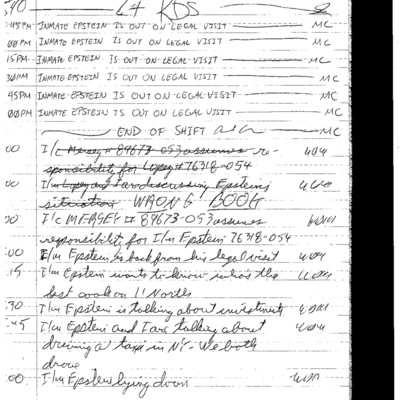 :45PM INMATE EPSTEIN IS OUT ON LEGAL VISIT MC
:00PM INMATE EPSTEIN IS OUT ON LEGAL VISIT MC
:15PM INMATE EPSTEIN IS OUT ON LEGAL VISIT MC
:30PM INMATE EPSTEIN IS OUT ON LEGAL VISIT MC
:45PM INMATE EPSTEIN IS OUT ON LEGAL VISIT MC
:00PM INMATE EPSTEIN IS OUT ON LEGAL VISIT MC
END OF SHIFT MC
:00 I/c Mersey # 89673-053 assumes re-
sponsibility for Lopez # 76318-054
:00 I/m Lopez and I are discussing Epstein's
situation WRONG BOOG
:00 I/c MERSEY # 89673-053 assumes
responsibility for I/m Epstein 76318-054
:00 I/m Epstein is back from his legal visit
:15 I/m Epstein wants to know who's the
best cook on 11 North
:30 I/m Epstein is talking about investments
:45 I/m Epstein and I are talking about
driving a taxi in NY. We both
drove
:00 I/m Epstein lying down